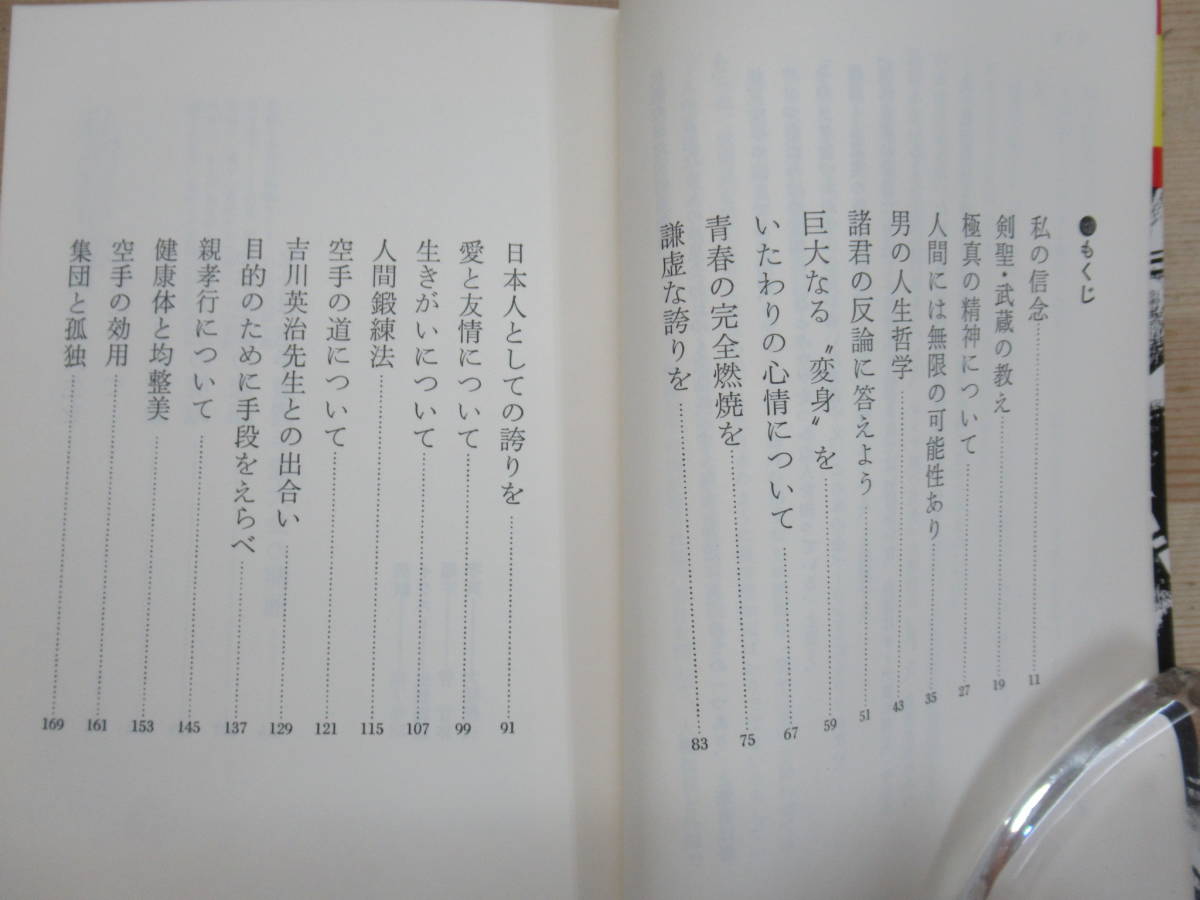 ●もくじ
私の信念……11
剣聖・武蔵の教え……19
極真の精神について……27
人間には無限の可能性あり……35
男の人生哲学……43
諸君の反論に答えよう……51
巨大なる〝変身〟を……59
いたわりの心情について……67
青春の完全燃焼を……75
謙虚な誇りを……83
日本人としての誇りを……91
愛と友情について……99
生きがいについて……107
人間鍛練法……115
空手の道について……121
吉川英治先生との出合い……129
目的のために手段をえらべ……137
親孝行について……145
健康体と均整美……153
空手の効用……161
集団と孤独……169